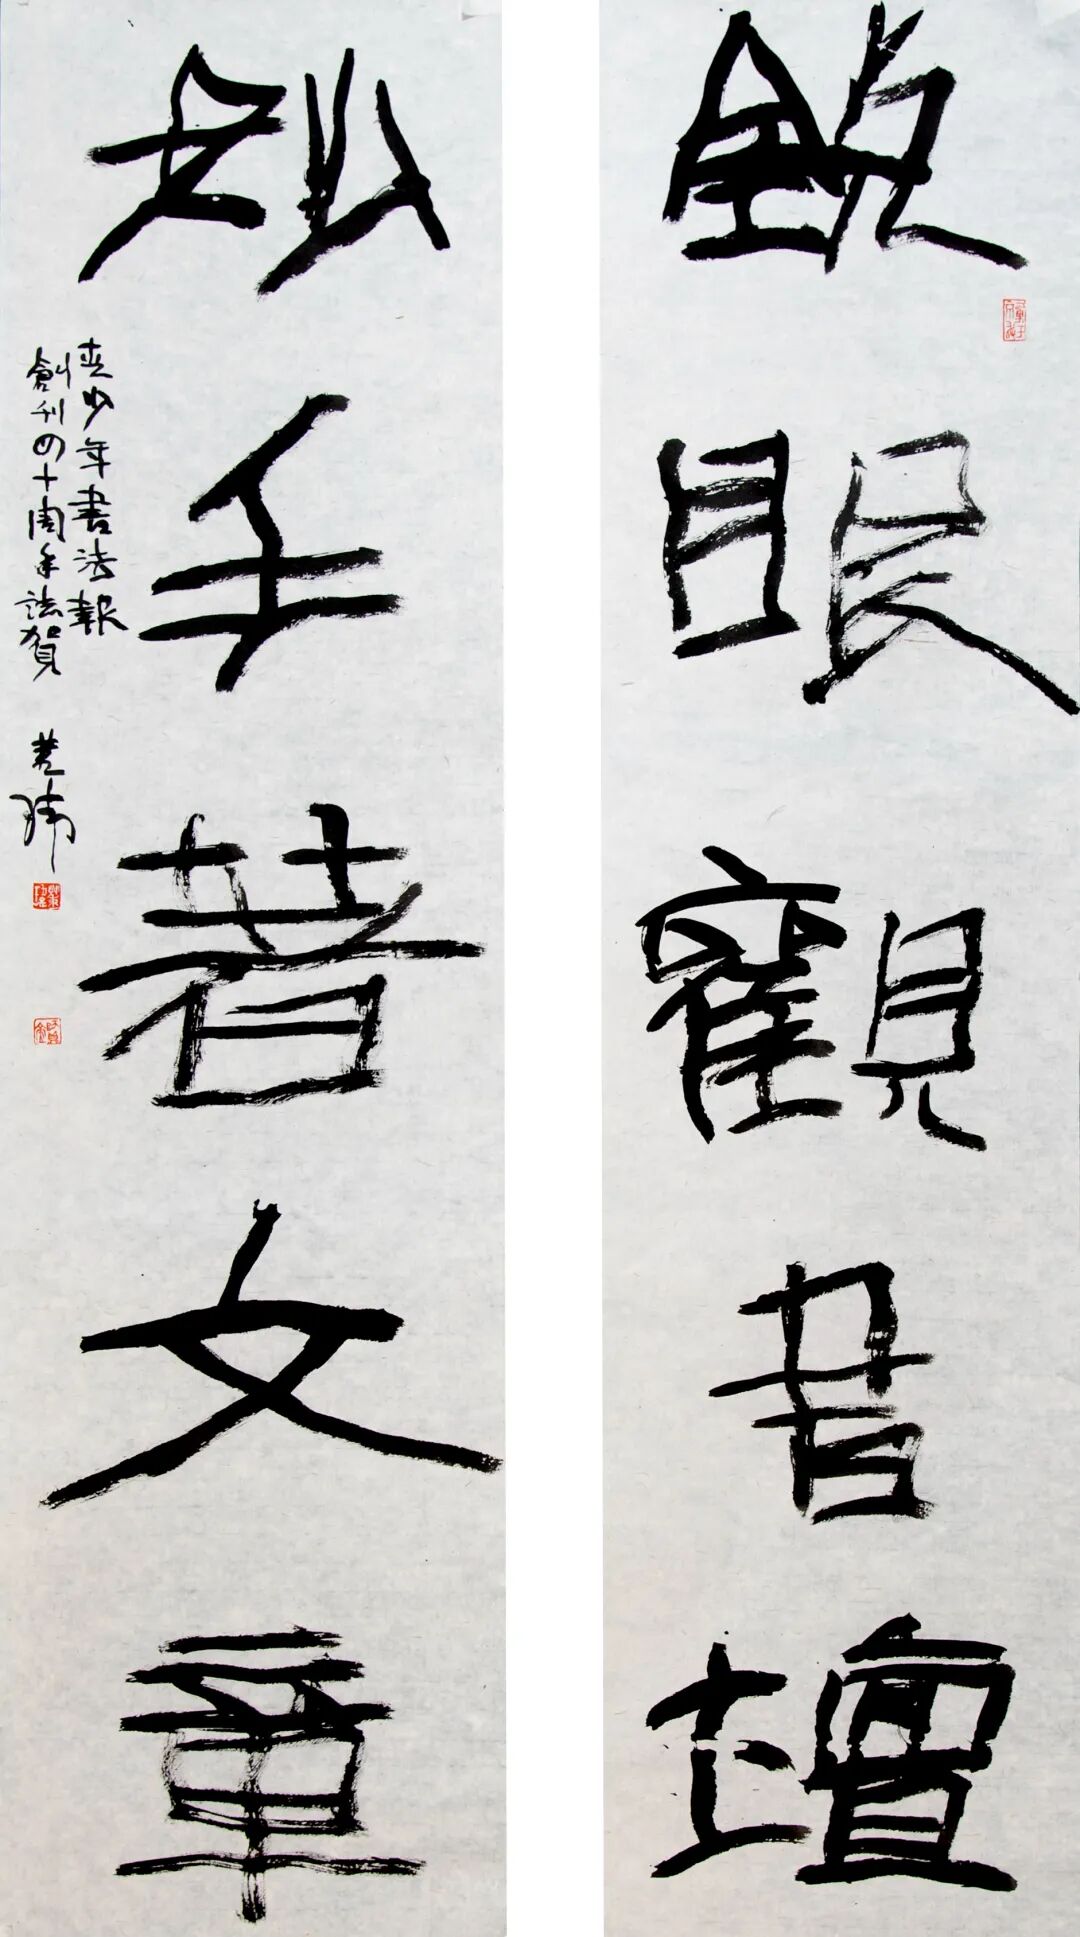 銳眼觀書壇
妙手著文章
青少年書法報
創刊四十周年誌賀